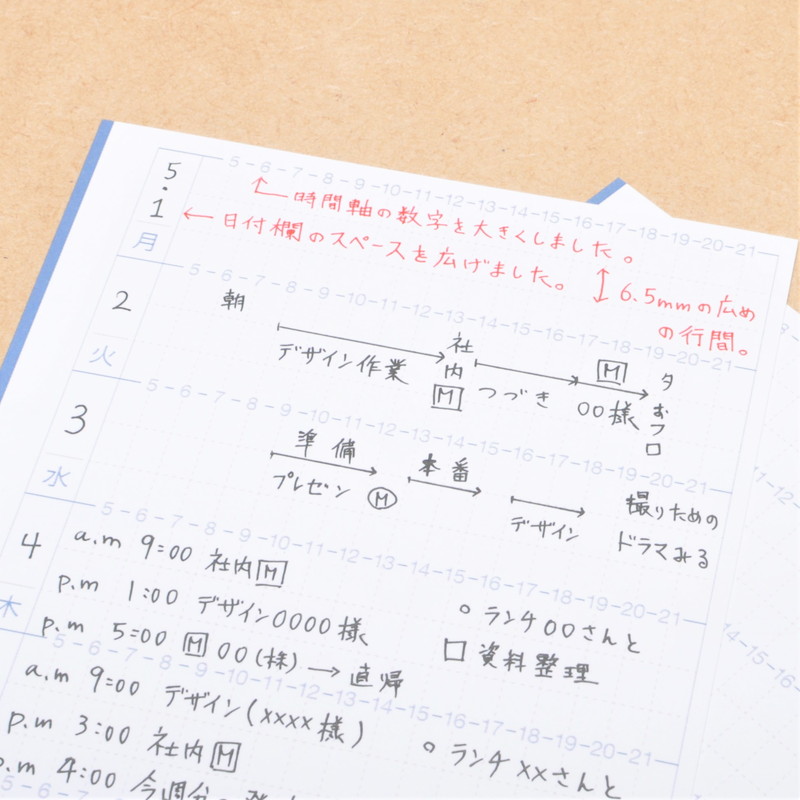 5-6-7-8-9-10-11-12-13-14-15-16-17-18-19-20-21
5・1
月
←時間軸の数字を大きくしました。
←日付欄のスペースを広げました。
↕6.5mmの広めの行間。
5-6-7-8-9-10-11-12-13-14-15-16-17-18-19-20-21
2
火
朝
デザイン作業
社内
M
つづき
M
〇〇様
夕
おフロ
5-6-7-8-9-10-11-12-13-14-15-16-17-18-19-20-21
3
水
準備
プレゼン M
本番
デザイン
撮りための
ドラマみる
5-6-7-8-9-10-11-12-13-14-15-16-17-18-19-20-21
4
木
a.m 9:00 社内M
p.m 1:00 デザイン〇〇〇〇様
p.m 5:00 M 〇〇(株)→直帰
○ ランチ〇〇さんと
□ 資料整理
5-6-7-8-9-10-11-12-13-14-15-16-17-18-19-20-21
a.m 9:00 デザイン(××××様)
p.m 3:00 社内M
p.m 4:00 今週分
○ ランチ××さんと